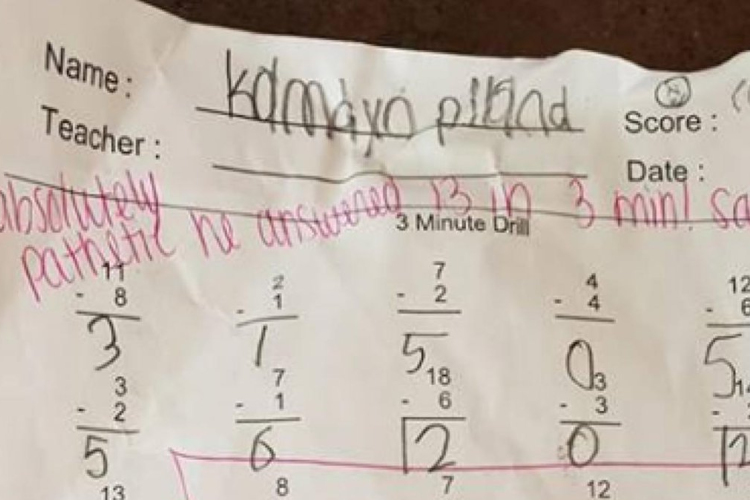 Name : kamayn piland Score :
Teacher : Date :
absolutely
pathetic he answered 13 in 3 min! sa
3 Minute Drill
11 2 7 4 12
- 8 - 1 - 2 - 4 - 6
3 1 5 0 5
3 7 18 3 14
- 2 - 1 - 6 - 3 -
5 6 12 0 12
13 8 7 12